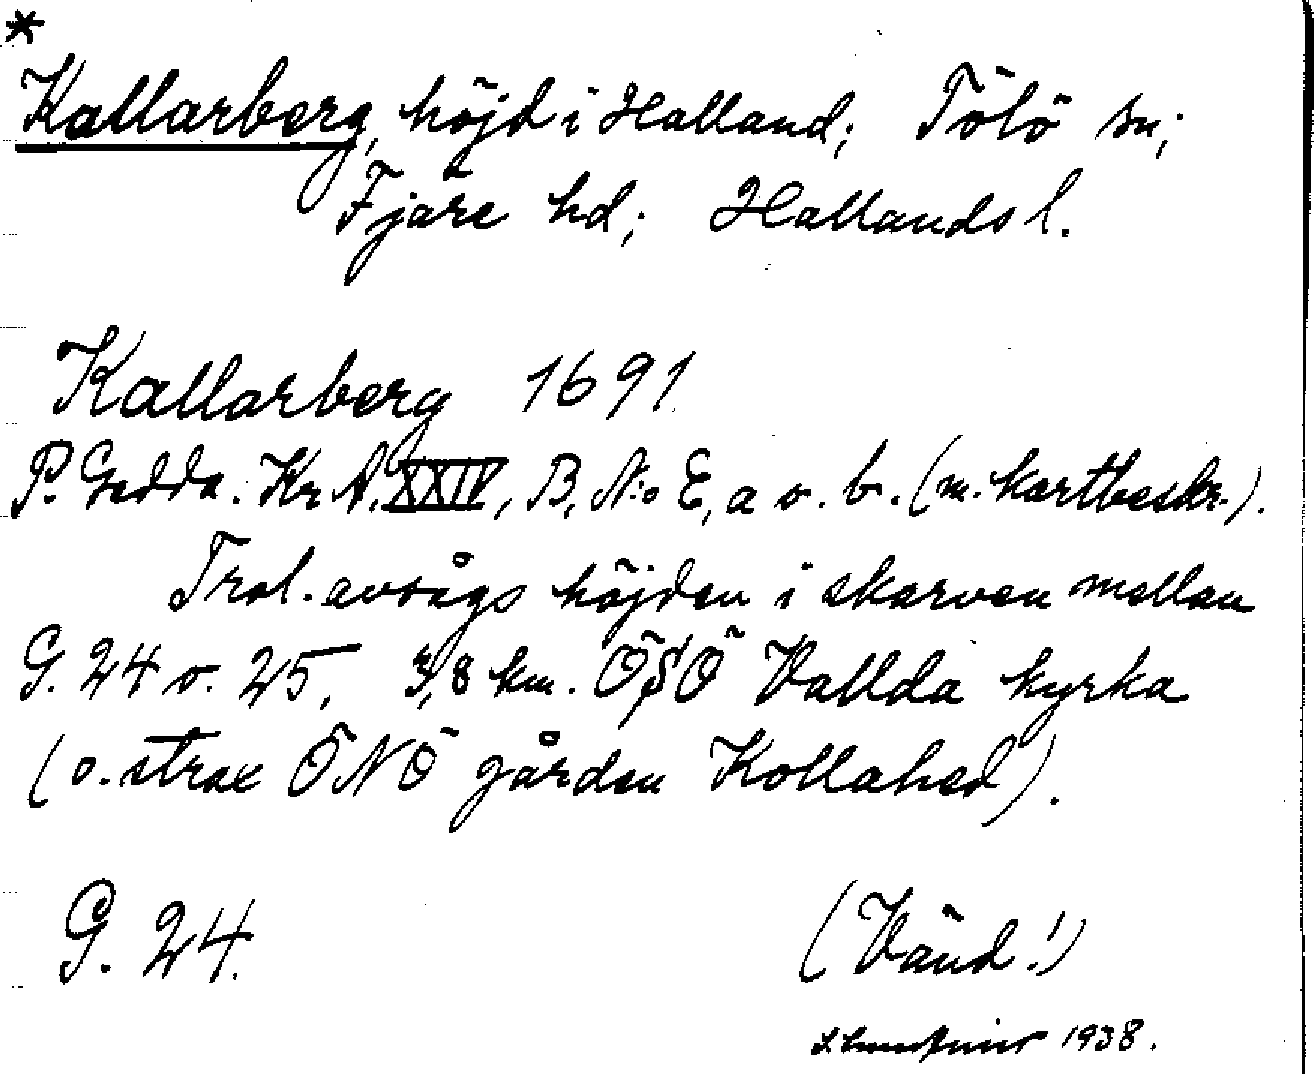 *
Kallarberg, höjd i Halland; Tölö sn;
Fjäre hd; Hallands l.
Kallarberg 1691
P. Gedda. Kr A. XXIV, B, N:o E, a o. b. (m. kartbeskr.).
Trol. avsågs höjden i skarven mellan
G. 24 o. 25, 3,8 km. ÖSÖ Vallda kyrka
(o. strax ÖNÖ gården Kollahed).
G. 24.
(Vänd!)
1938.